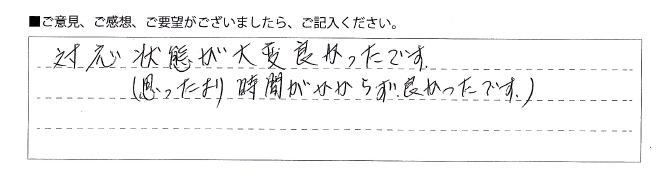 ■ご意見、ご感想、ご要望がございましたら、ご記入ください。
対応状態が大変良かったです。
(思ったより時間がかからず、良かったです。)